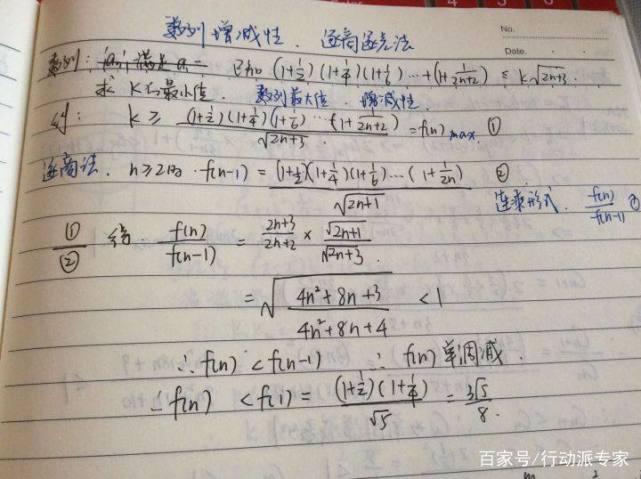 数列增减性. 逐商逐差法
No.
Date.
数列: 已知 (1+1/2)(1+1/4)(1+1/6)…+(1+1/(2n+2)) ≤ k√(2n+3).
求 K的最小值. 数列最大值. 增减性
k ≥ (1+1/2)(1+1/4)(1+1/6)…(1+1/(2n+2)) / √(2n+3) = f(n) max ①
逐商法. n≥2时. f(n-1) = (1+1/2)(1+1/4)(1+1/6)…(1+1/2n) / √(2n+1) ②
连乘形式. f(n)/f(n-1)
①/② 得 f(n)/f(n-1) = (2n+3)/(2n+2) × √(2n+1)/√(2n+3).
= √((4n²+8n+3)/(4n²+8n+4)) < 1
∴ f(n) < f(n-1) ∴ f(n) 单调减.
∴ f(n) < f(1) = (1+1/2)(1+1/4)/√5 = 3√5/8.
百家号/行动派专家